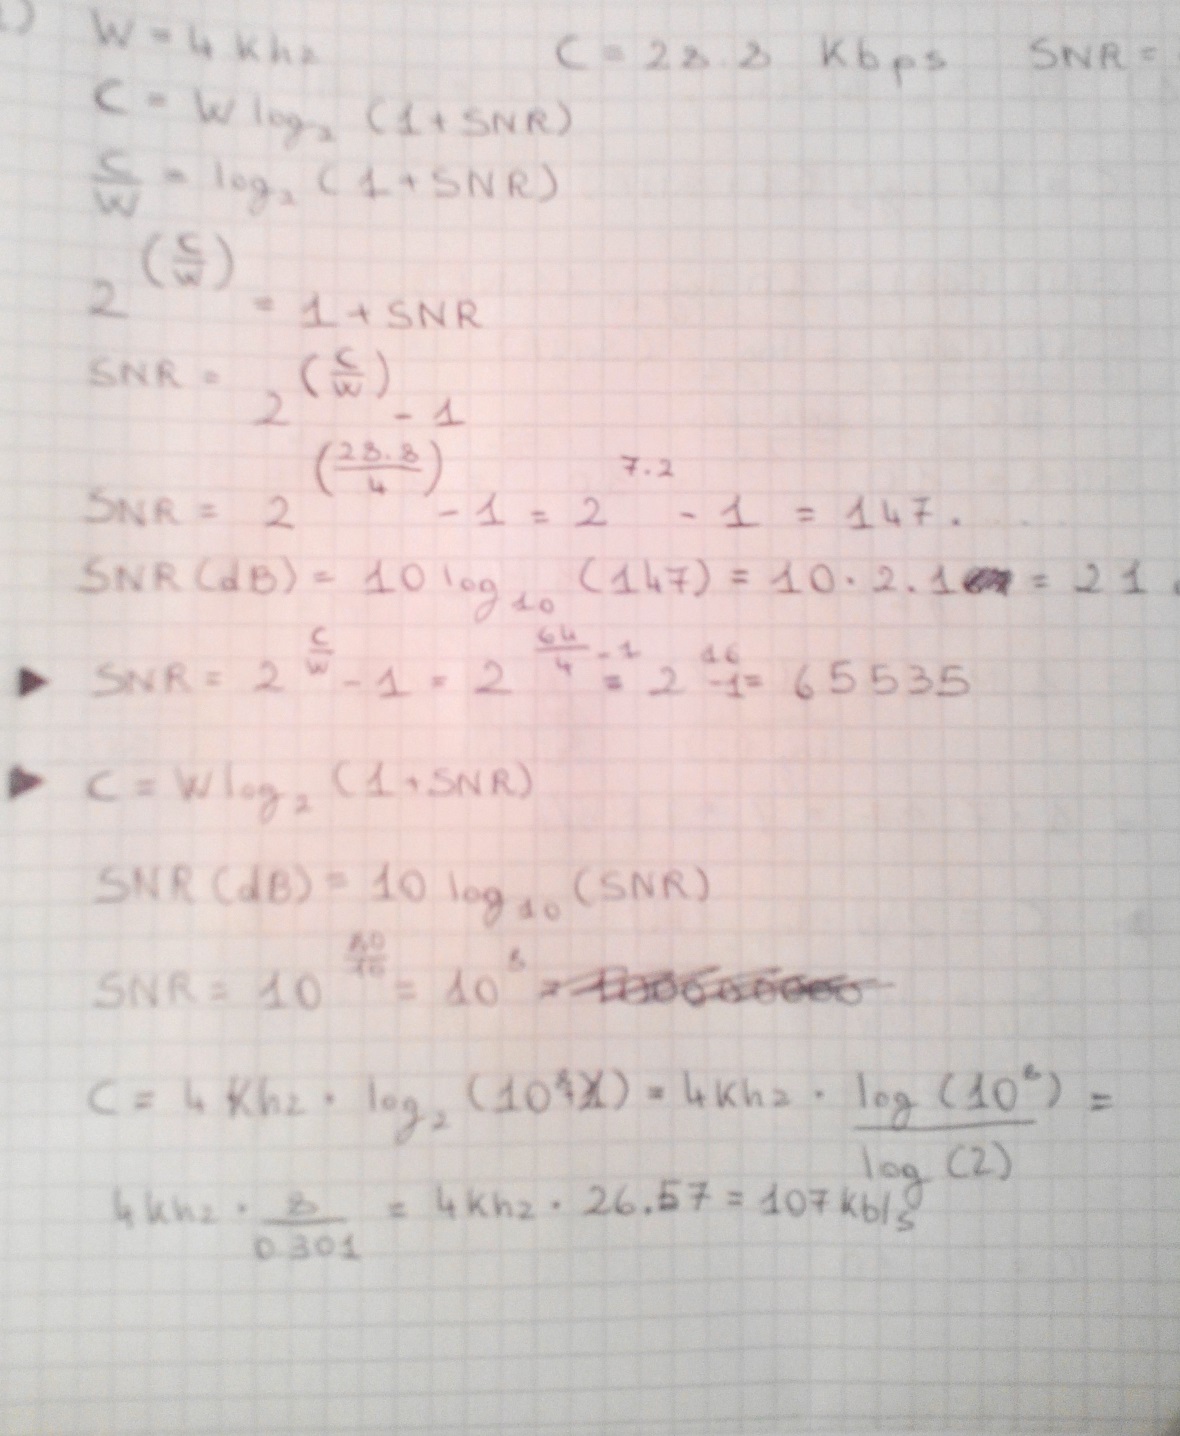 W = 4 Khz C = 28.8 Kbps SNR =
C = W log₂ (1 + SNR)
C/W = log₂ (1 + SNR)
2^(C/W) = 1 + SNR
SNR = 2^(C/W) - 1
SNR = 2^(28.8/4) - 1 = 2^7.2 - 1 = 147.
SNR (dB) = 10 log₁₀ (147) = 10 · 2.1 = 21
▶ SNR = 2^C/W - 1 = 2^64/4 - 1 = 2^16 - 1 = 65535
▶ C = W log₂ (1 + SNR)
SNR (dB) = 10 log₁₀ (SNR)
SNR = 10^80/10 = 10^8 =
C = 4 Khz · log₂ (10^8 + 1) = 4 Khz · log (10^8) / log (2) =
4 khz · 8/0.301 = 4 Khz · 26.57 = 107 kb/s